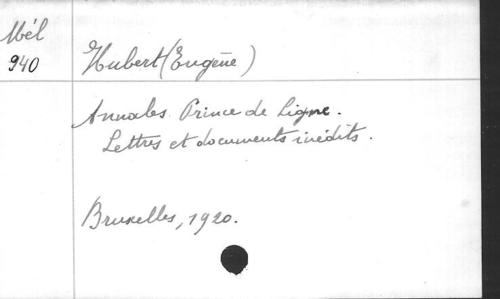 Mél
940
Hubert (Eugène)
Annales Prince de Ligne.
Lettres et documents inédits.
Bruxelles, 1920.